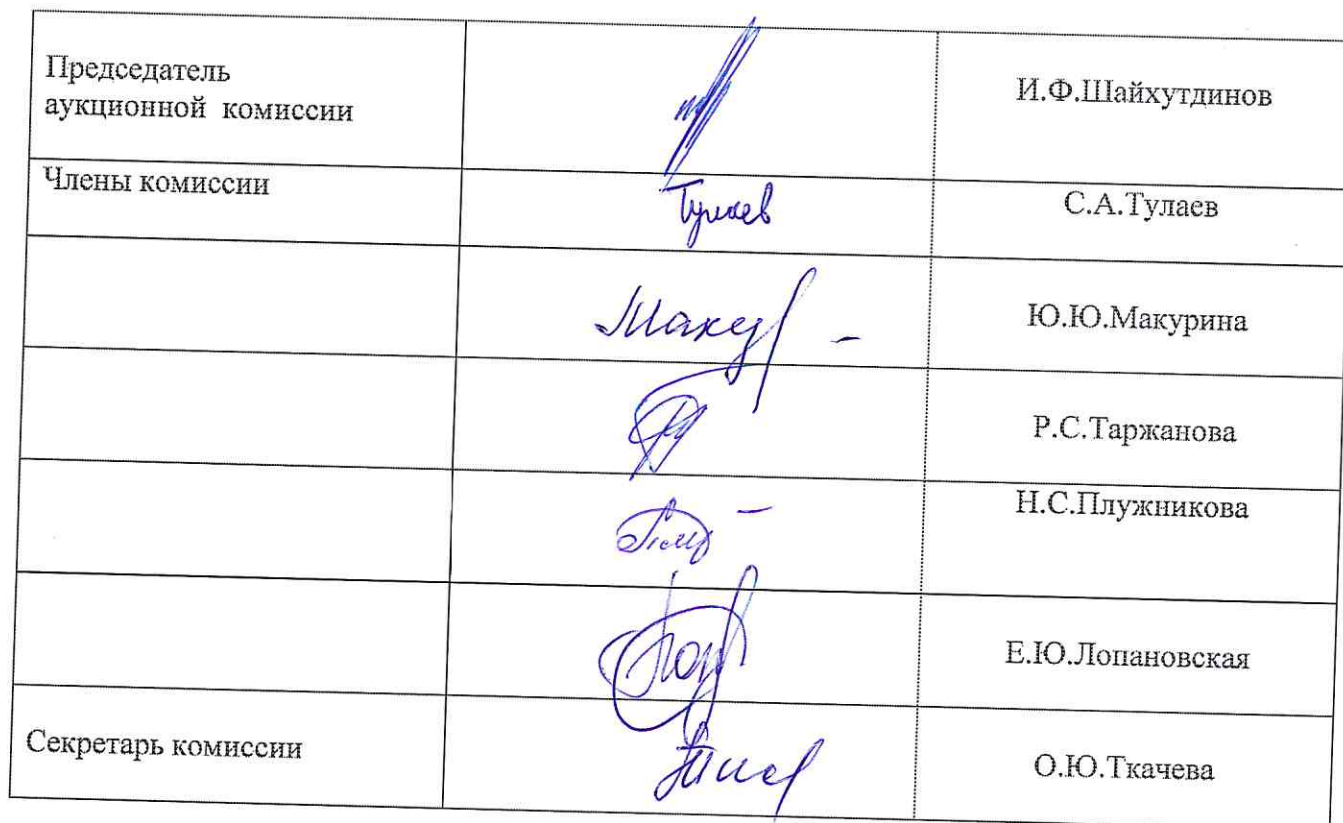 Председатель
аукционной комиссии
И.Ф.Шайхутдинов
Члены комиссии
Тулаев
С.А.Тулаев
Ю.Ю.Макурина
Р.С.Таржанова
Н.С.Плужникова
Е.Ю.Лопановская
Секретарь комиссии
О.Ю.Ткачева